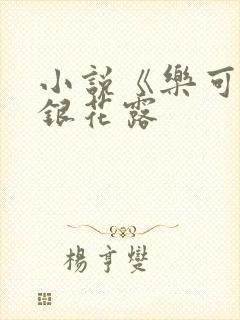 小說《樂可
銀花露
楊亨燮